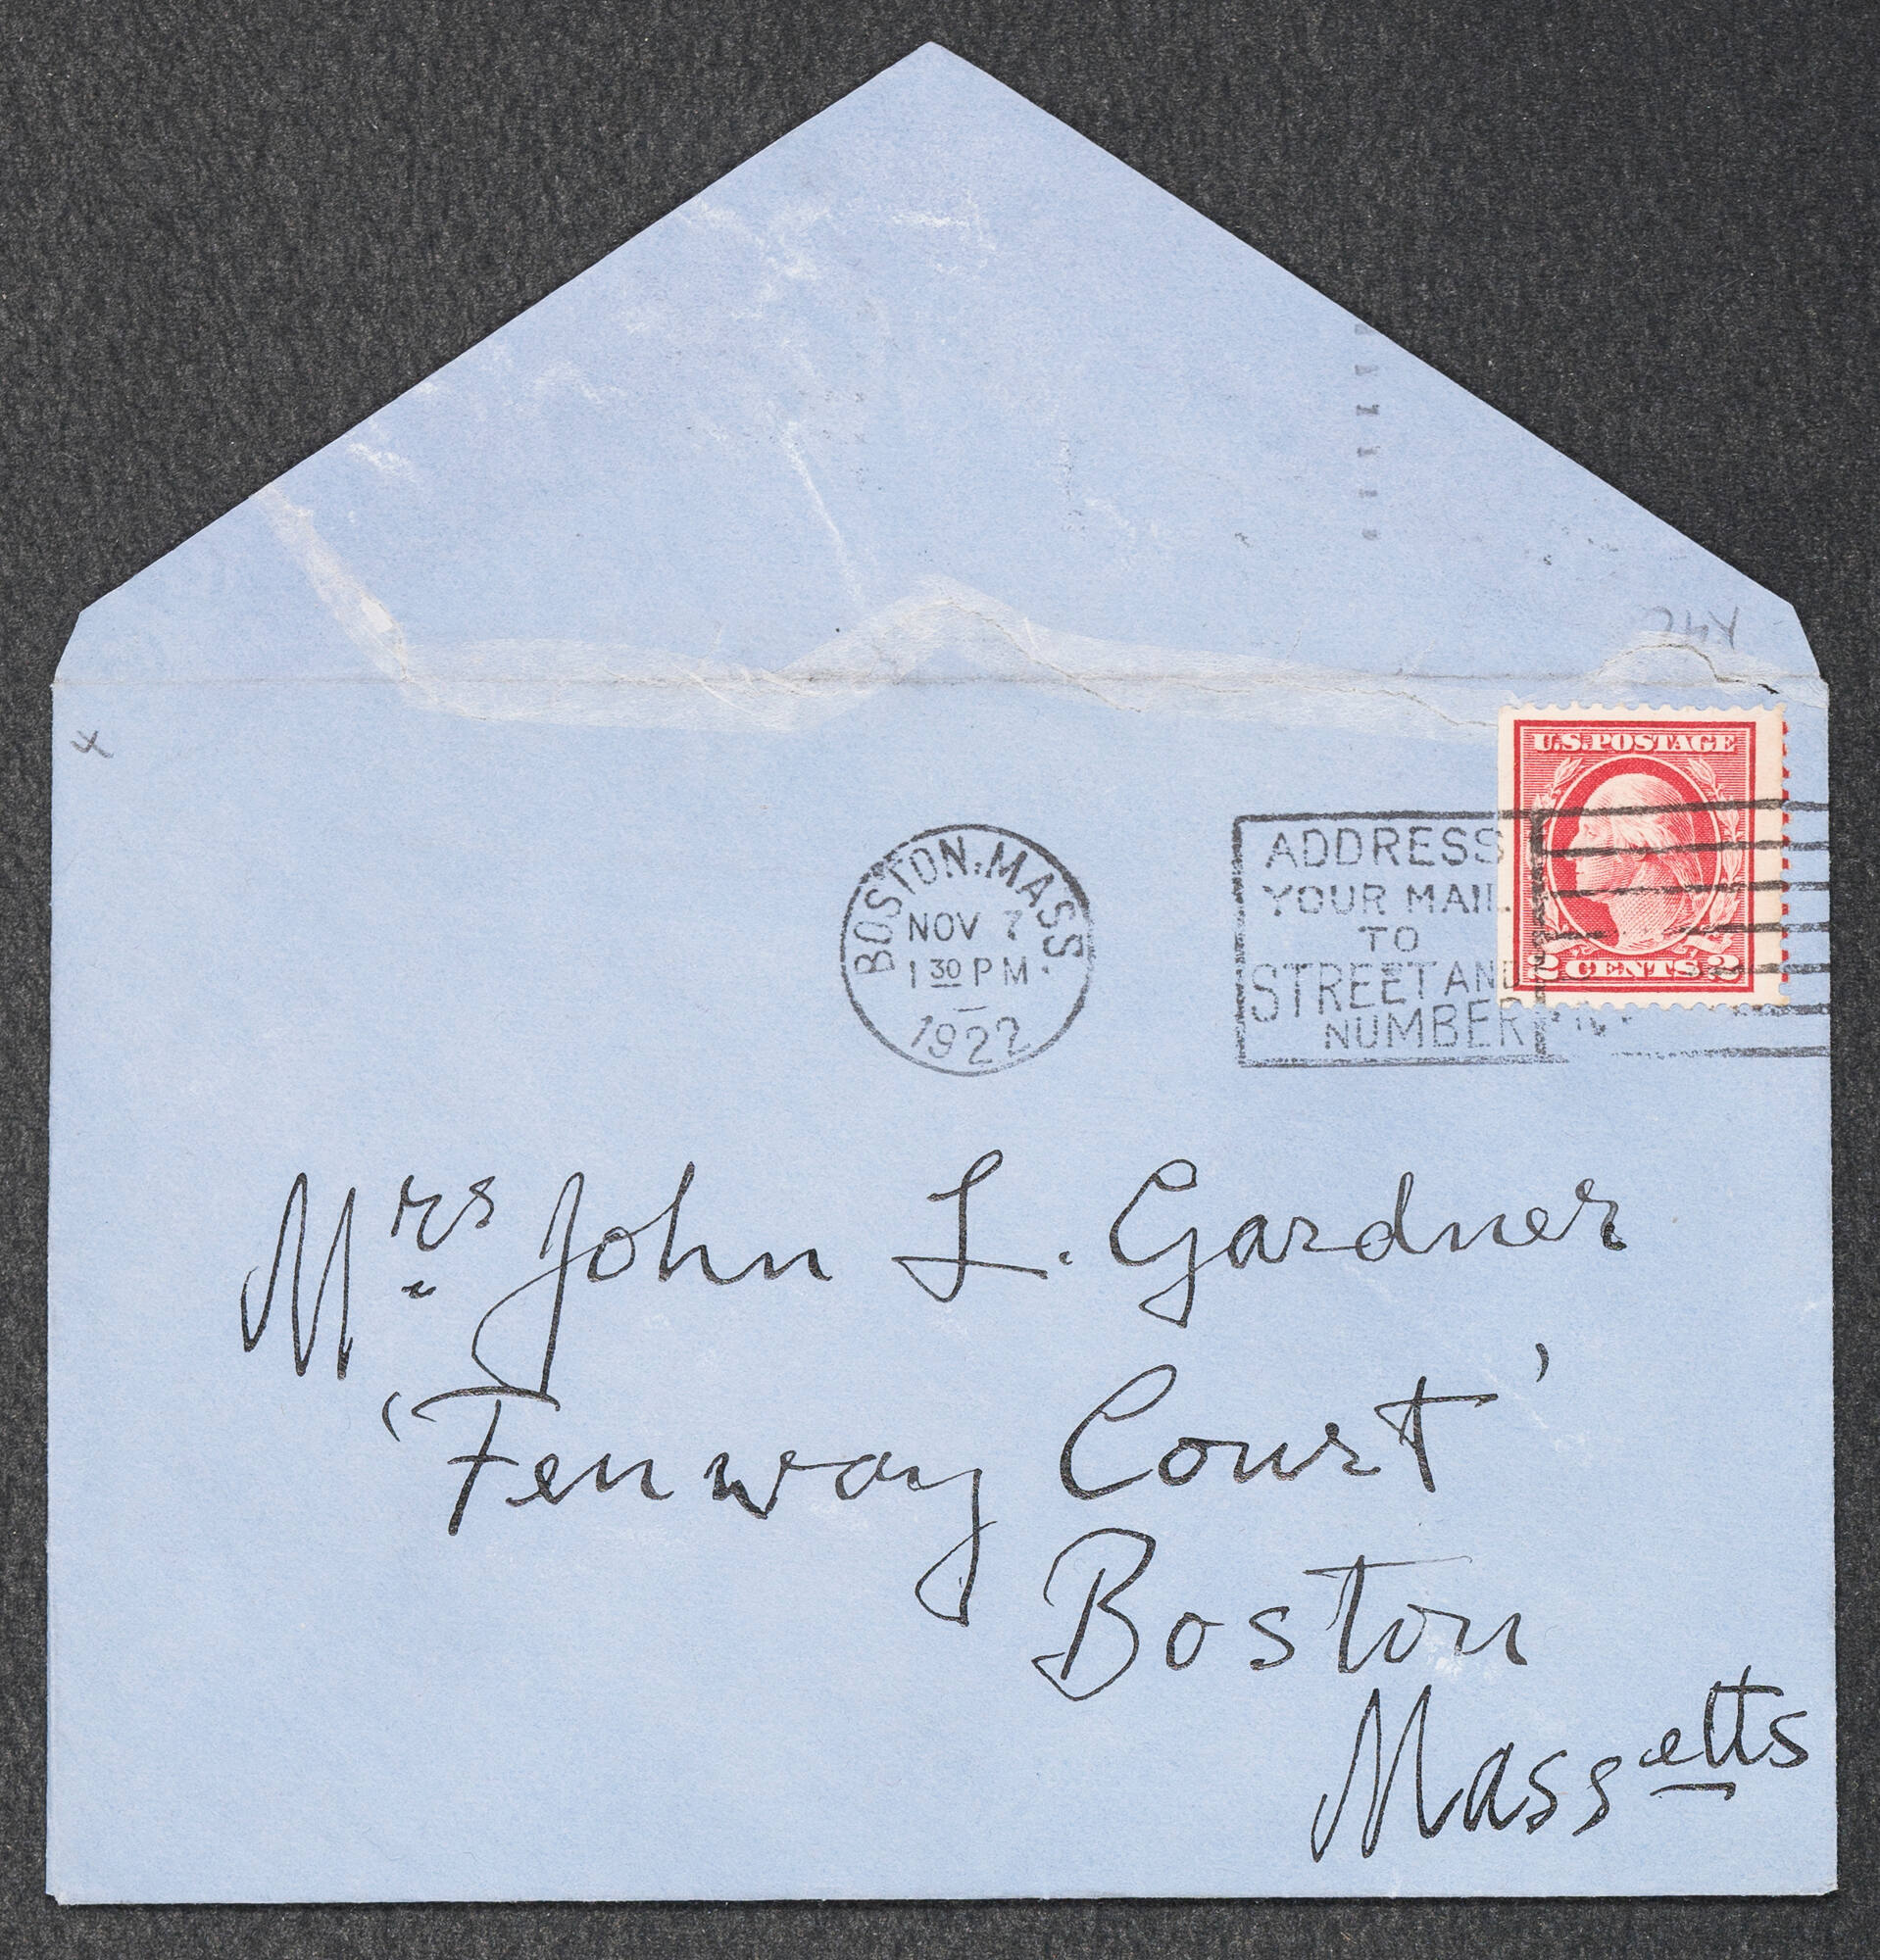 U.S. POSTAGE
2 CENTS 2
BOSTON, MASS.
NOV 7
1 30 PM
1922
ADDRESS
YOUR MAIL
TO
STREET AND
NUMBER
Mrs John L. Gardner
'Fenway Court'
Boston
Massetts